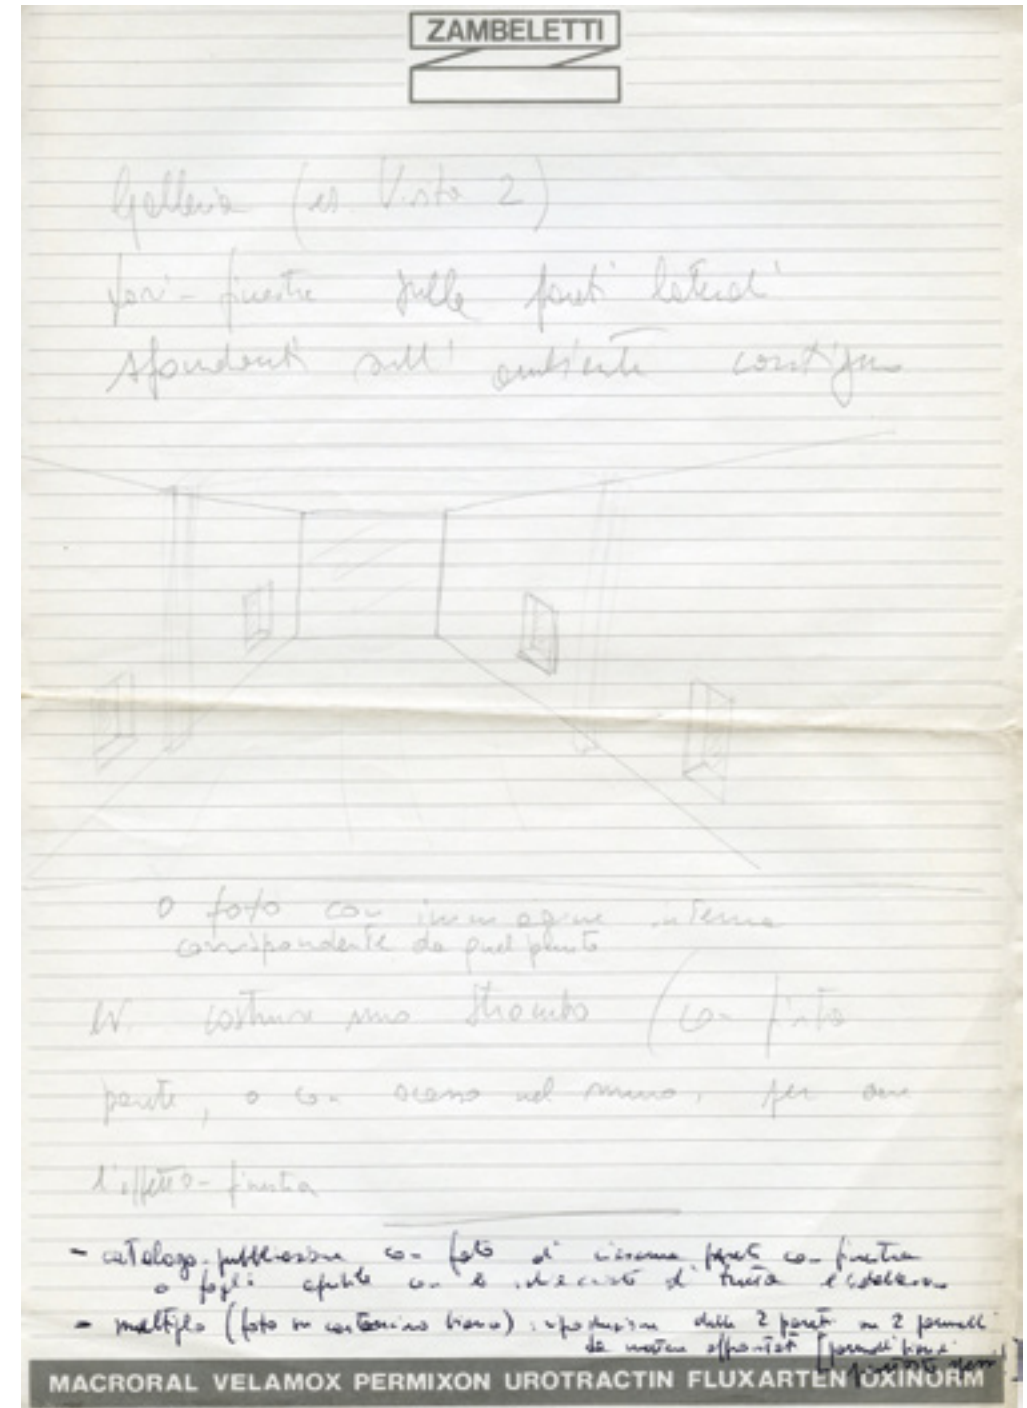 ZAMBELETTI
Galleria (es. Vista 2)
fori-finestre sulle pareti laterali
sfondanti sull'ambiente contiguo
o foto con immagine interna
corrispondente da quel punto
costruire uno strombo (con finta
parete, o con scasso nel muro, per
l'effetto-finestra
- catalogo-pubblicazione con foto di ciascuna parete con finestra
o fogli
- multiplo (foto su cartoncino bianco): riproduzione delle 2 pareti su 2 pannelli
da mettere affrontati
MACRORAL VELAMOX PERMIXON UROTRACTIN FLUXARTEN OXINORM